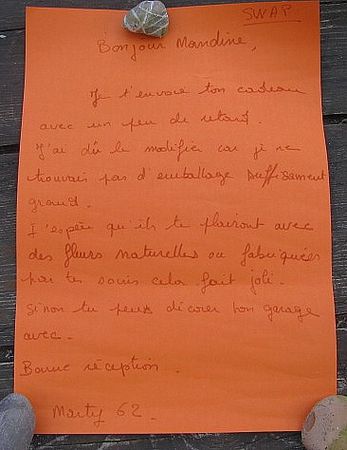 SWAP
Bonjour Mandine,
Je t'envoie ton cadeau
avec un peu de retard.
J'ai dû le modifier car je ne
trouvais pas d'emballage suffisament
grand.
J'espère qu'ils te plairont avec
des fleurs naturelles ou fabriquées
par tes soins cela fait joli.
Sinon tu peux décorer ton garage
avec.
Bonne réception.
Marty 62.